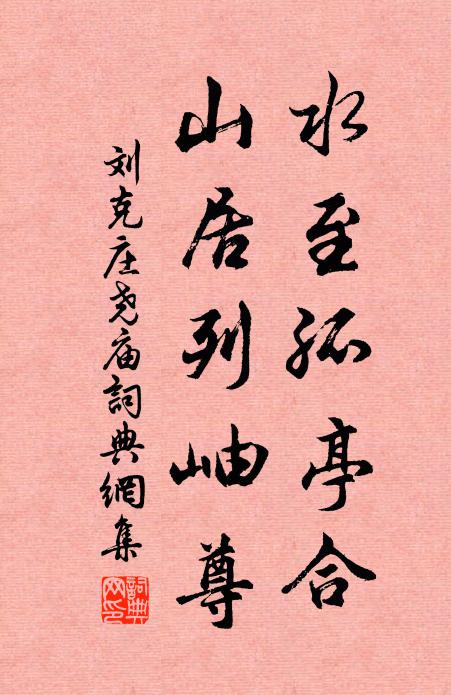 水至孤亭合
山居列岫尊
刘克庄尧庙詞典網集
詞典网印